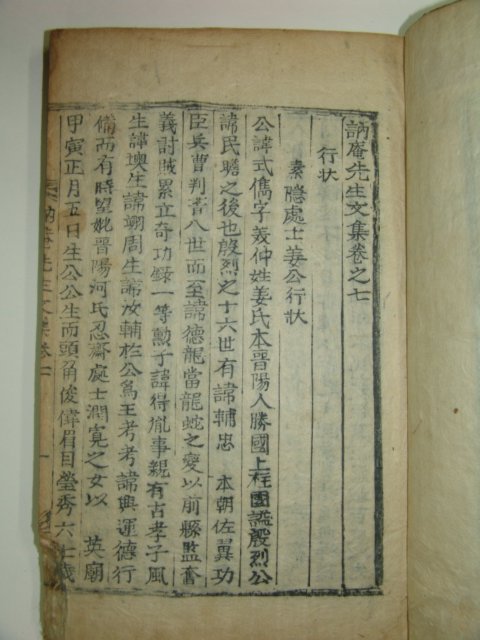 訥庵先生文集卷之七
行狀
素隱處士姜公行狀
公諱式儁字羲仲姓姜氏本晋陽人勝國上柱國諡殷烈公
諱民瞻之後也殷烈之十六世有諱輔忠 本朝佐翼功
臣兵曹判書八世而至諱德龍當龍蛇之變以前縣監奮
義討賊累立奇功錄一等勳子諱得胤事親有古孝子風
生諱墺生諱翊周生諱汝輔於公爲王考考諱興運德行
備而有時望妣晋陽河氏忍齋處士潤寬之女以 英廟
甲寅正月五日生公公生而頭角俊偉眉目瑩秀六七歲
訥庵先生文集卷七 一